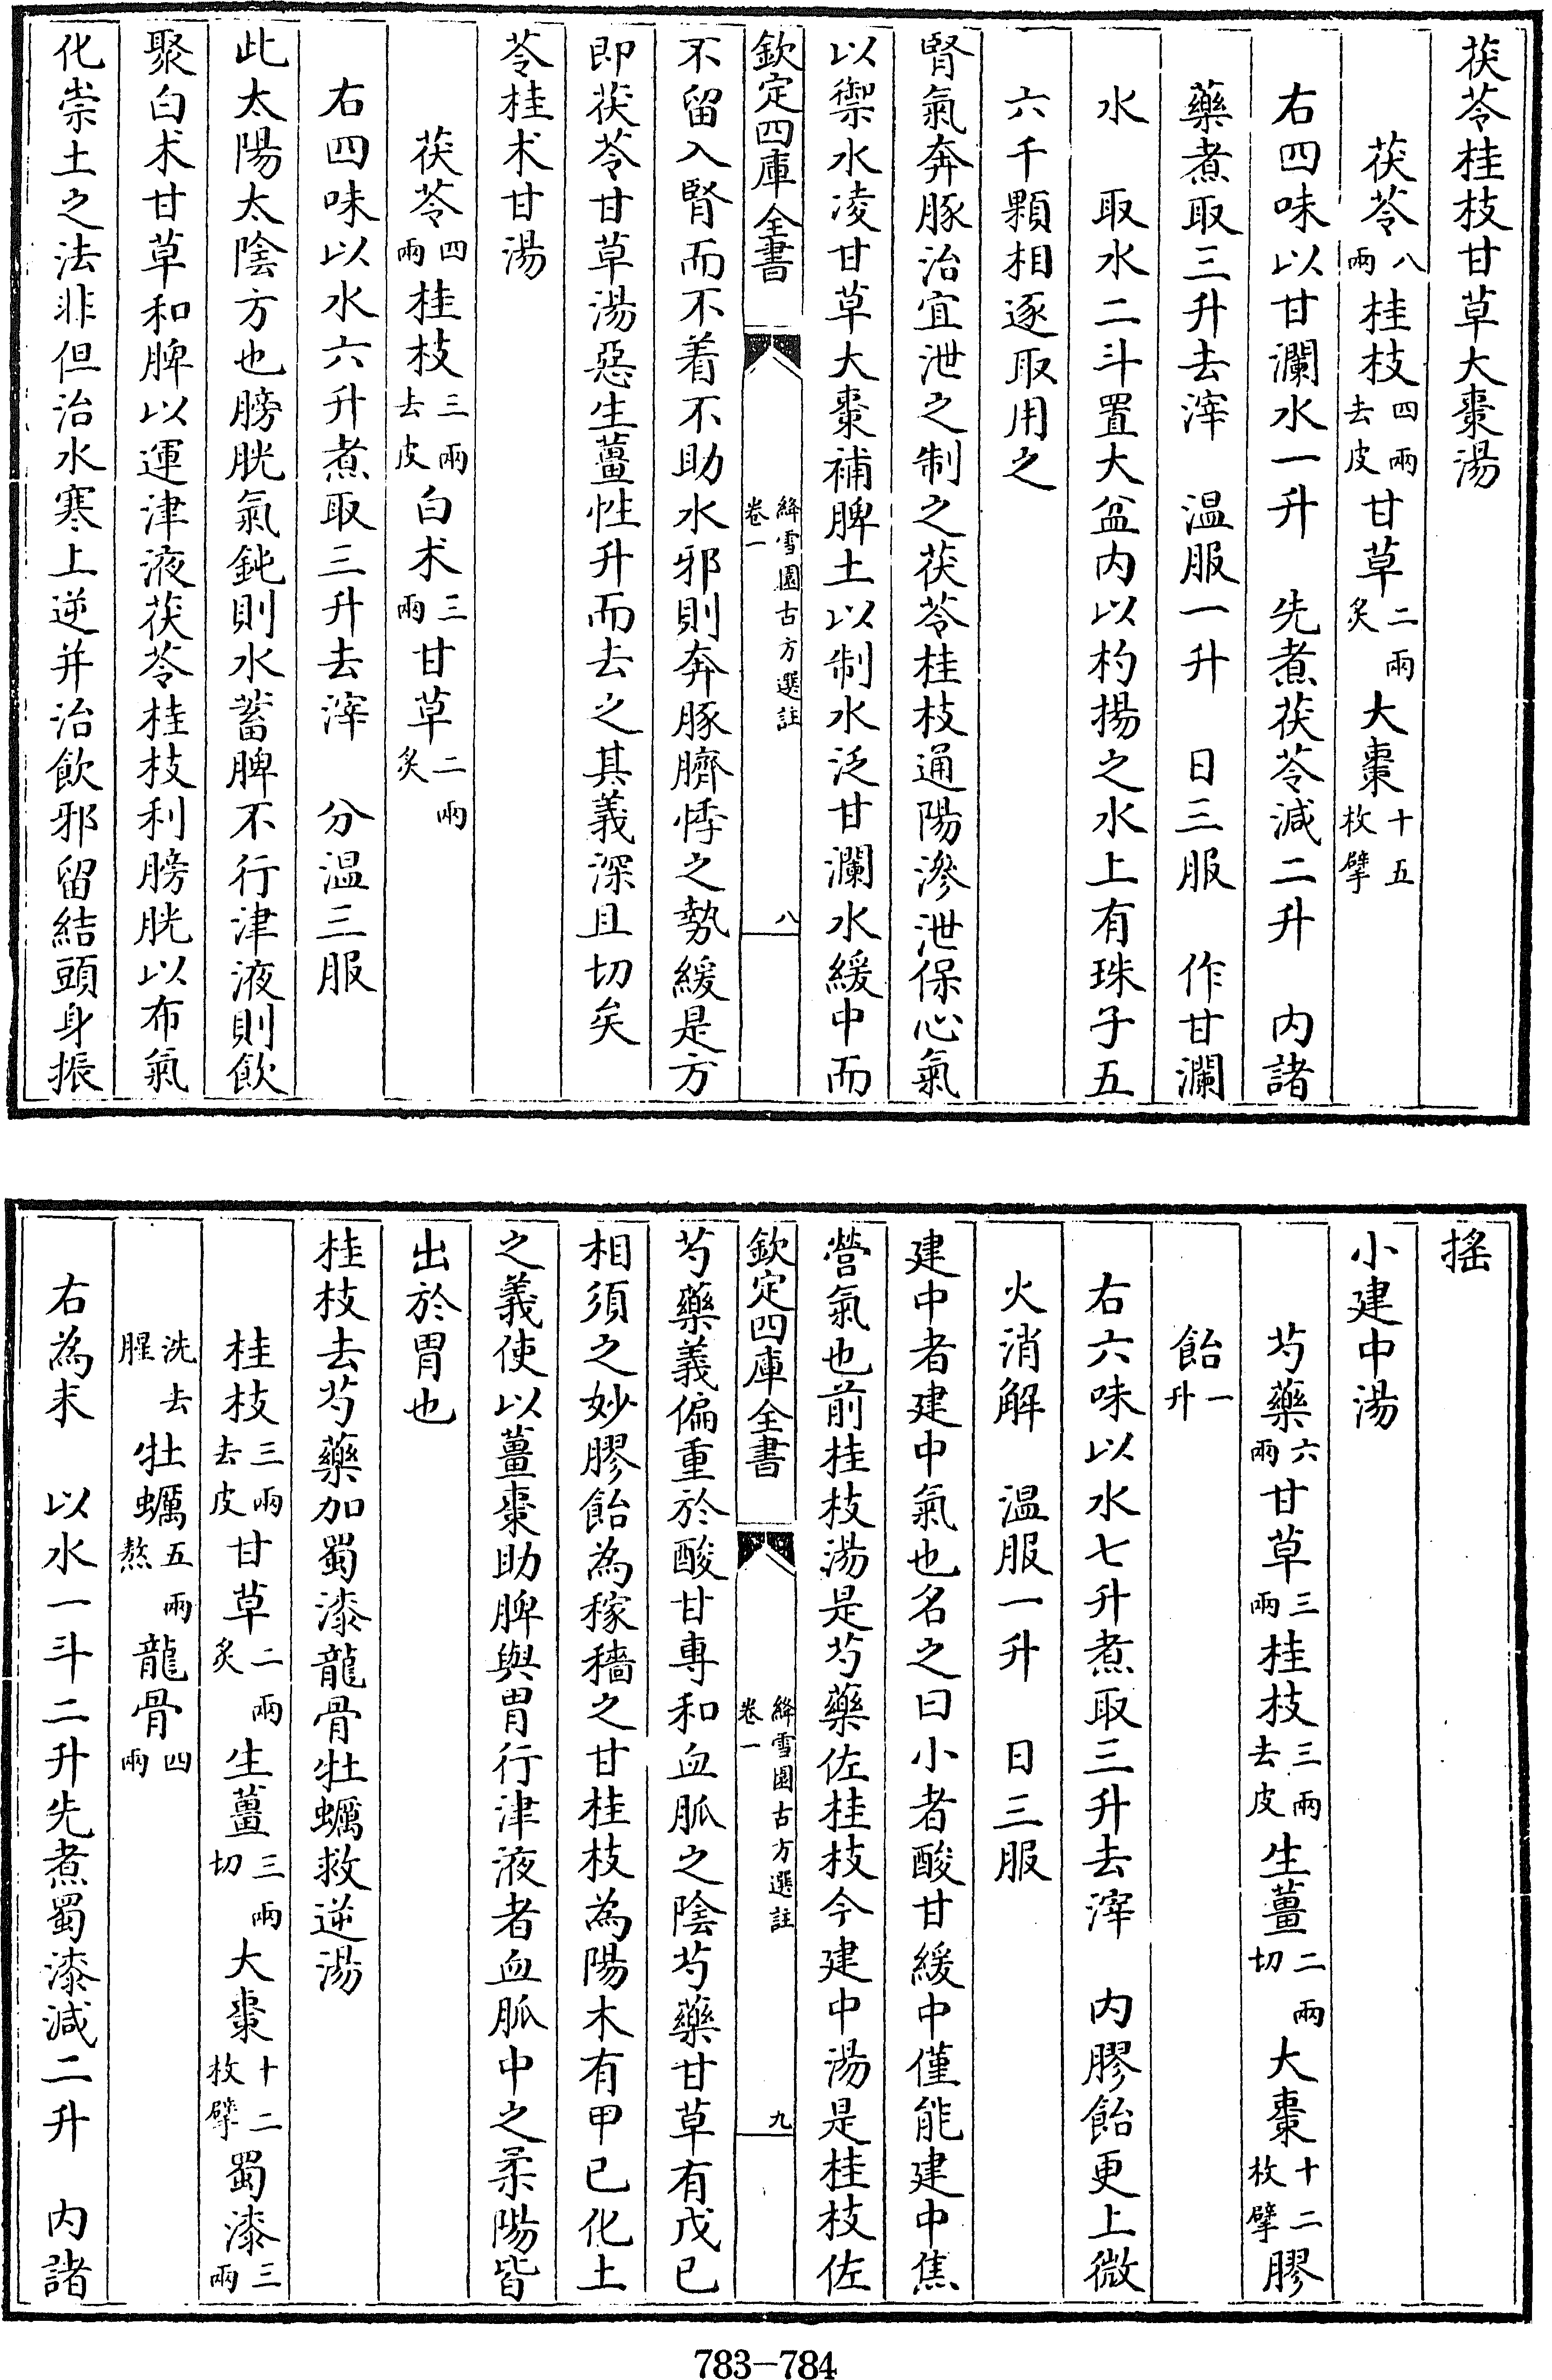 茯苓桂枝甘草大棗湯
茯苓八兩桂枝四兩去皮甘草二兩炙大棗十五枚擘
右四味以甘瀾水一升　先煮茯苓減二升　内諸
藥煮取三升去滓　温服一升　日三服　作甘瀾
水　取水二斗置大盆内以杓揚之水上有珠子五
六千顆相逐取用之
腎氣奔豚治宜泄之制之茯苓桂枝通陽滲泄保心氣
以禦水凌甘草大棗補脾土以制水泛甘瀾水緩中而
欽定四庫全書　絳雪園古方選註卷一　八
不留入腎而不着不助水邪則奔豚臍悸之勢緩是方
即茯苓甘草湯惡生薑性升而去之其義深且切矣
苓桂术甘湯
茯苓四兩桂枝三兩去皮白术三兩甘草二兩炙
右四味以水六升煮取三升去滓　分温三服
此太陽太陰方也膀胱氣鈍則水蓄脾不行津液則飲
聚白术甘草和脾以運津液茯苓桂枝利膀胱以布氣
化崇土之法非但治水寒上逆并治飲邪留結頭身振
搖
小建中湯
芍藥六兩甘草三兩桂枝三兩去皮生薑二兩切大棗十二枚擘膠
飴一升
右六味以水七升煮取三升去滓　内膠飴更上微
火消解　温服一升　日三服
建中者建中氣也名之曰小者酸甘緩中僅能建中焦
營氣也前桂枝湯是芍藥佐桂枝今建中湯是桂枝佐
欽定四庫全書　絳雪園古方選註卷一　九
芍藥義偏重於酸甘專和血脈之陰芍藥甘草有戊己
相須之妙膠飴為稼穡之甘桂枝為陽木有甲己化土
之義使以薑棗助脾與胃行津液者血脈中之柔陽皆
出於胃也
桂枝去芍藥加蜀漆龍骨牡蠣救逆湯
桂枝三兩去皮甘草二兩炙生薑三兩切大棗十二枚擘蜀漆三兩
洗去腥牡蠣五兩熬龍骨四兩
右為末　以水一斗二升先煮蜀漆減二升　内諸
783–784